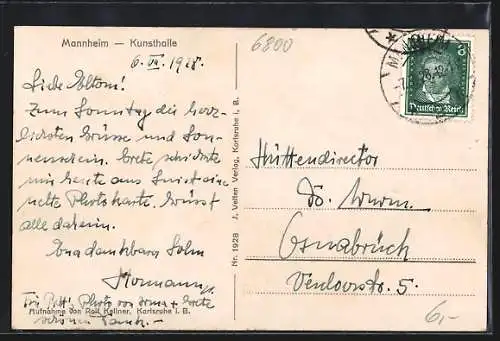 Mannheim — Kunsthalle
6800
6. VII. 1928.
Liebe Eltern!
Zum Sonntag die herz-
lichsten Grüsse und Son-
nenschein. Grete schickte
mir heute aus eine
nette Photokarte. Grüsst
alle daheim.
Euer dankbarer Sohn
Hermann
Photo von Irma + Grete
schönen Dank.-
Aufnahme von Rolf Kellner, Karlsruhe i. B.
Nr. 1928 J. Velten Verlag, Karlsruhe i. B.
MANNHEIM
8
Deutsches Reich
Hüttendirector
Dr. Wurm.
Osnabrück
Venloerstr. 5.
6,-